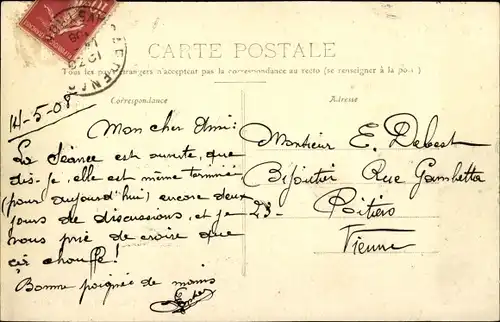 CARTE POSTALE
Tous les pays étrangers n'acceptent pas la correspondance au recto (se renseigner à la poste)
Correspondance
Adresse
14-5-08
Mon cher Ami:
La Séance est ouverte, que
dis-je, elle est même terminée
(pour aujourd'hui) encore deux
jours de discussions, et je
vous prie de croire que
çà chauffe!
Bonne poignée de mains
Monsieur E. Debest
Bijoutier Rue Gambetta
23-
Poitiers
Vienne